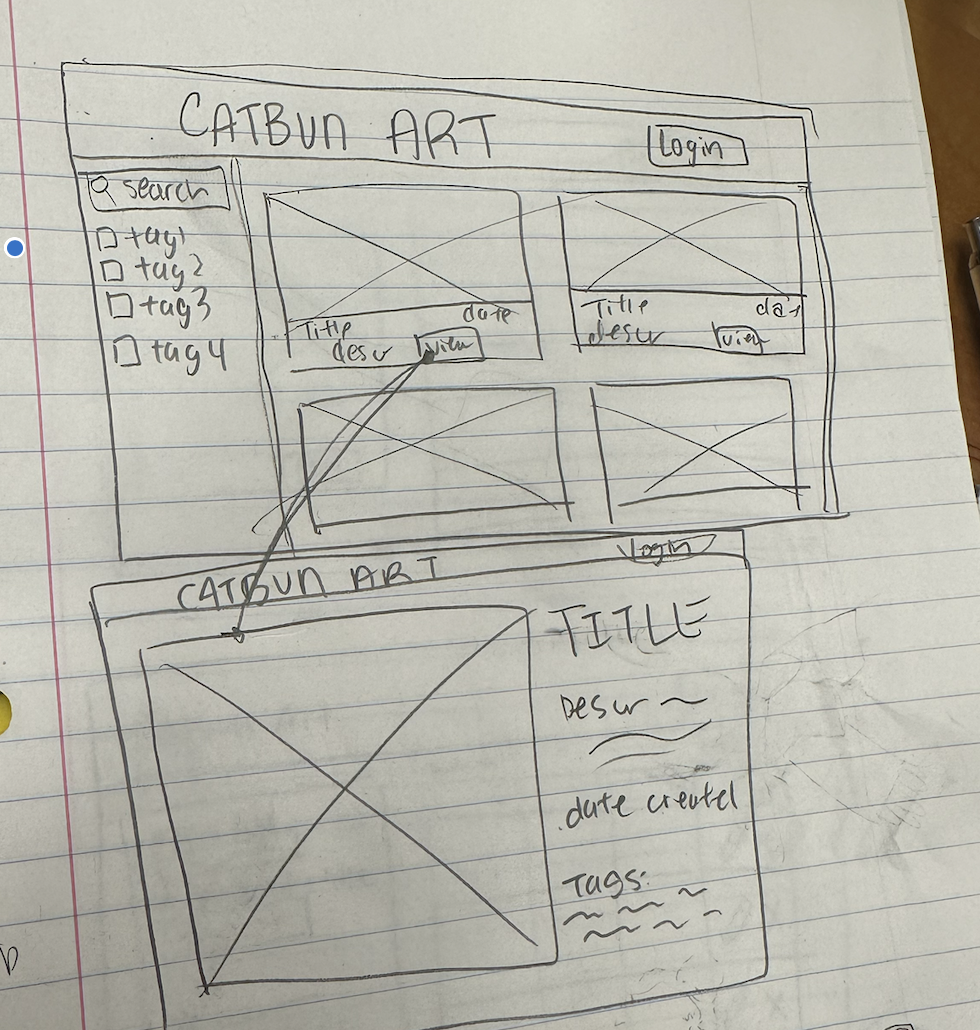 CATBUN ART
Login
search
tag1
tag2
tag3
tag4
Title date
descr view
Title dat
descr view
CATBUN ART Login
TITLE
Descr
date created
Tags: